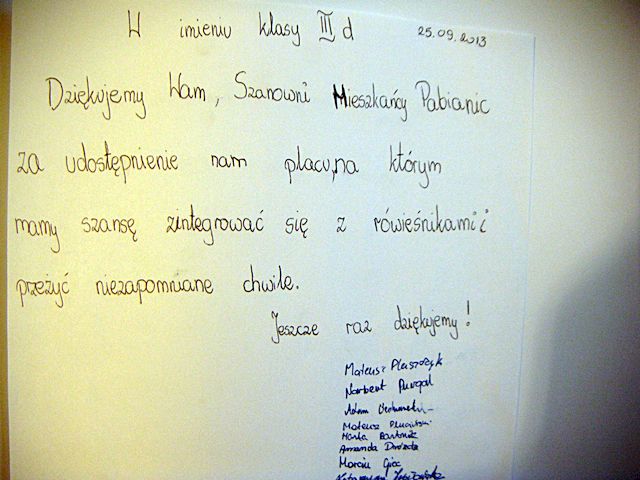 W imieniu klasy III d 25.09.2013
Dziękujemy Wam, Szanowni Mieszkańcy Pabianic
za udostępnienie nam placu, na którym
mamy szansę zintegrować się z rówieśnikami i
przeżyć niezapomniane chwile.
Jeszcze raz dziękujemy!
Mateusz
Norbert
Adam
Mateusz
Marta Bartosik
Amanda Drozda
Marcin